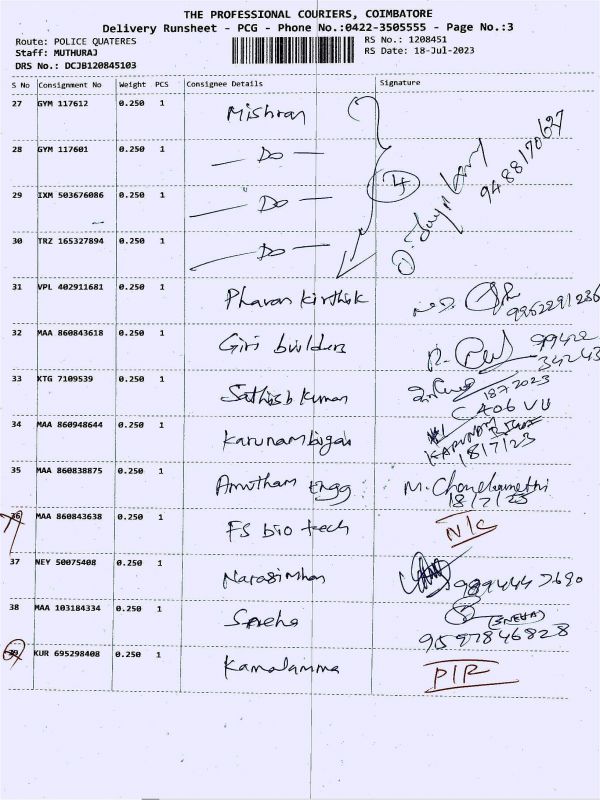 THE PROFESSIONAL COURIERS, COIMBATORE
Delivery Runsheet - PCG - Phone No.:0422-3505555 - Page No.:3
Route: POLICE QUATERES RS No.: 1208451
Staff: MUTHURAJ RS Date: 18-Jul-2023
DRS No.: DCJB120845103
S No Consignment No Weight PCS Consignee Details Signature
27 GYM 117612 0.250 1 Mishran
28 GYM 117601 0.250 1 — Do — 4 9488170627
29 IXM 503676086 0.250 1 — Do —
30 TRZ 165327894 0.250 1 — Do —
31 VPL 402911681 0.250 1 Pharan Kirthik
32 MAA 860843618 0.250 1 Giri builders 99422
34243
33 KTG 7109539 0.250 1 Sathish Kumar 18.7.2023
C 406 VU
34 MAA 860948644 0.250 1 Karunambigai
18/7/23
35 MAA 860838875 0.250 1 Amutham Engg
18/7/23
36 MAA 860843638 0.250 1 FS bio tech N/C
37 NEY 50075408 0.250 1 Narasimhan
38 MAA 103184334 0.250 1 Sneha (SNEHA)
9597846828
39 KUR 695298408 0.250 1 Kamalamma P/R